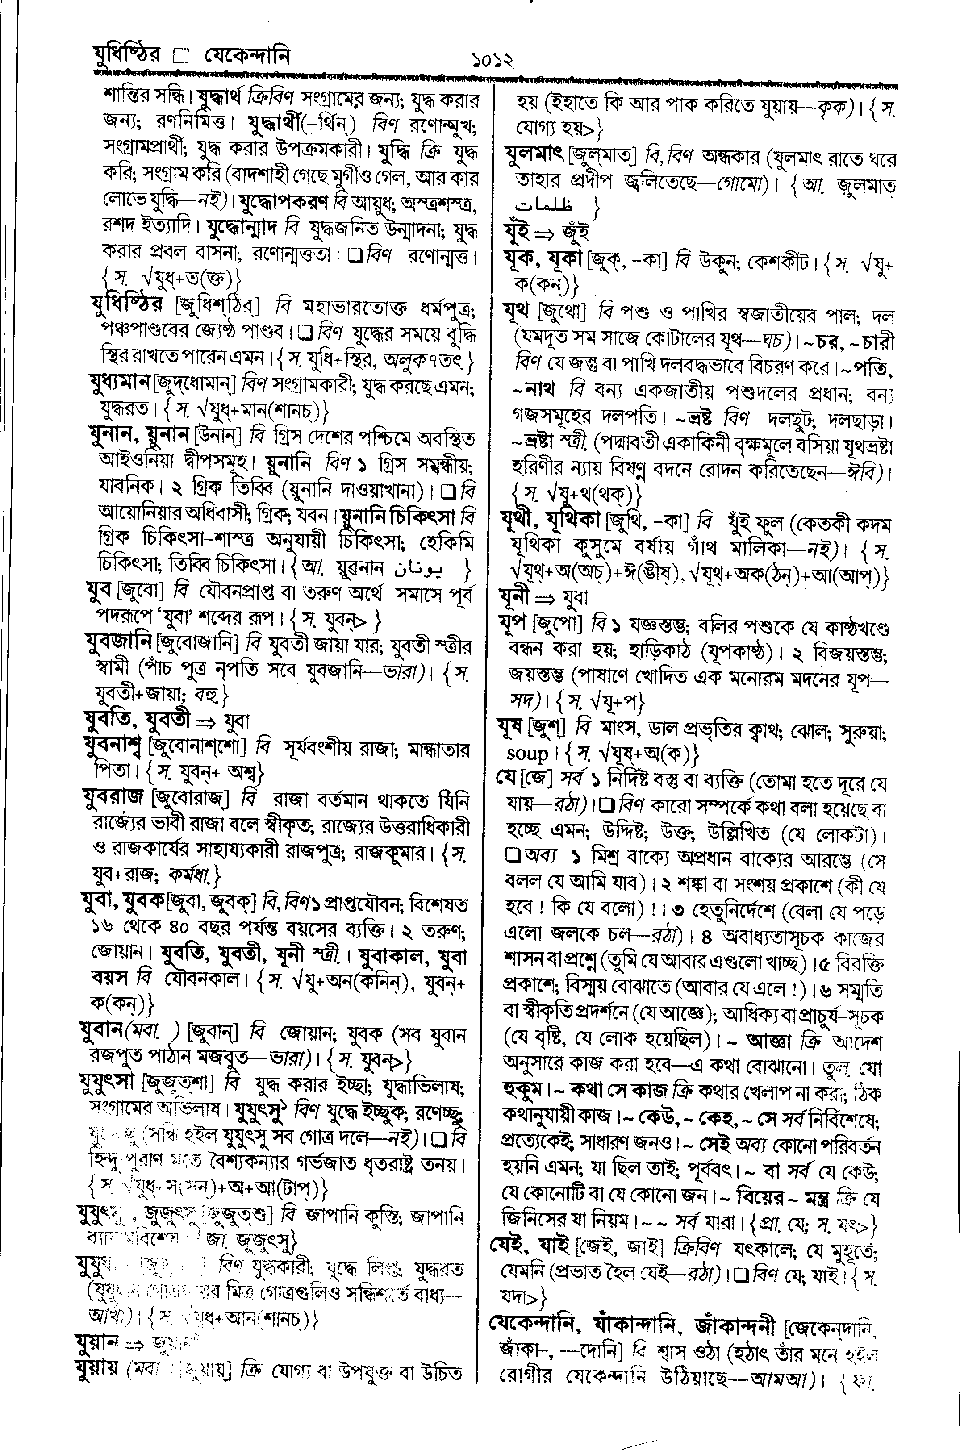 যুধিষ্ঠির □ যেকেন্দানি
১০১২
শান্তির সন্ধি। যুদ্ধার্থ ক্রিবিণ সংগ্রামের জন্য; যুদ্ধ করার
জন্য; রণনিমিত্ত। যুদ্ধার্থী(–র্থিন্) বিণ রণোন্মুখ;
সংগ্রামপ্রার্থী; যুদ্ধ করার উপক্রমকারী। যুদ্ধি ক্রি যুদ্ধ
করি; সংগ্রাম করি (বাদশাহী গেছে মুর্গীও গেল, আর কার
লোভে যুদ্ধি—নই)। যুদ্ধোপকরণ বি আয়ুধ; অস্ত্রশস্ত্র,
রশদ ইত্যাদি। যুদ্ধোন্মাদ বি যুদ্ধজনিত উন্মাদনা; যুদ্ধ
করার প্রবল বাসনা; রণোন্মত্ততা। ❑ বিণ রণোন্মত্ত।
{স. √যুধ্+ত(ক্ত)}
যুধিষ্ঠির [জুধিশ্‌ঠির্] বি মহাভারতোক্ত ধর্মপুত্র;
পঞ্চপাণ্ডবের জ্যেষ্ঠ পাণ্ডব। ❑ বিণ যুদ্ধের সময়ে বুদ্ধি
স্থির রাখতে পারেন এমন। {স. যুধি+স্থির, অলুক ৭তৎ}
যুধ্যমান [জুদ্‌ধোমান্] বিণ সংগ্রামকারী; যুদ্ধ করছে এমন;
যুদ্ধরত। {স. √যুধ্+মান(শানচ্)}
যুনান, য়ুনান [উনান্] বি গ্রিস দেশের পশ্চিমে অবস্থিত
আইওনিয়া দ্বীপসমূহ। য়ুনানি বিণ ১ গ্রিস সম্বন্ধীয়;
যাবনিক। ২ গ্রিক তিব্বি (য়ুনানি দাওয়াখানা)। ❑ বি
আয়োনিয়ার অধিবাসী; গ্রিক; যবন। য়ুনানি চিকিৎসা বি
গ্রিক চিকিৎসা-শাস্ত্র অনুযায়ী চিকিৎসা; হেকিমি
চিকিৎসা; তিব্বি চিকিৎসা। {আ. য়ূৱনান يونان}
যুব [জুবো] বি যৌবনপ্রাপ্ত বা তরুণ অর্থে সমাসে পূর্ব
পদরূপে ‘যুবা’ শব্দের রূপ। {স. যুবন্>}
যুবজানি [জুবোজানি] বি যুবতী জায়া যার; যুবতী স্ত্রীর
স্বামী (পাঁচ পুত্র নৃপতি সবে যুবজানি—ভারা)। {স.
যুবতী+জায়া; বহু.}
যুবতি, যুবতী ⇒ যুবা
যুবনাশ্ব [জুবোনাশ্‌শো] বি সূর্যবংশীয় রাজা; মান্ধাতার
পিতা। {স. যুবন্+ অশ্ব}
যুবরাজ [জুবোরাজ্] বি রাজা বর্তমান থাকতে যিনি
রাজ্যের ভাবী রাজা বলে স্বীকৃত; রাজ্যের উত্তরাধিকারী
ও রাজকার্যের সাহায্যকারী রাজপুত্র; রাজকুমার। {স.
যুব+রাজ; কর্মধা.}
যুবা, যুবক [জুবা, জুবক্] বি, বিণ ১ প্রাপ্তযৌবন; বিশেষত
১৬ থেকে ৪০ বছর পর্যন্ত বয়সের ব্যক্তি। ২ তরুণ;
জোয়ান। যুবতি, যুবতী, যূনী স্ত্রী.। যুবাকাল, যুবা
বয়স বি যৌবনকাল। {স. √যু+অন(কনিন্), যুবন্+
ক(কন্)}
যুবান (মবা.) [জুবান্] বি জোয়ান; যুবক (সব যুবান
রজপুত পাঠান মজবুত—ভারা)। {স. যুবন্>}
যুযুৎসা [জুজুত্‌শা] বি যুদ্ধ করার ইচ্ছা; যুদ্ধাভিলাষ;
সংগ্রামের অভিলাষ। যুযুৎসু১ বিণ যুদ্ধে ইচ্ছুক; রণেচ্ছু
(সন্ধি হইল যুযুৎসু সব গোত্র দলে—নই)। ❑ বি
হিন্দু পুরাণ মতে বৈশ্যকন্যার গর্ভজাত ধৃতরাষ্ট্র তনয়।
{স. √যুধ্+স(সন্)+অ+আ(টাপ্)}
যুযুৎসু, জুজুৎসু [জুজুত্‌শু] বি জাপানি কুস্তি; জাপানি
জা. জুজুৎসু}
বিণ যুদ্ধকারী; যুদ্ধে লিপ্ত; যুদ্ধরত
মিত্র গোত্রগুলিও সন্ধিশর্তে বাধ্য—
স. √যুধ্+আন(শানচ্)}
যুয়ান ⇒
যুয়ায় (মবা.) ক্রি যোগ্য বা উপযুক্ত বা উচিত
হয় (ইহাতে কি আর পাক করিতে যুয়ায়—কৃক)। {স.
যোগ্য হয়>}
যুলমাৎ [জুলমাত্] বি, বিণ অন্ধকার (যুলমাৎ রাতে ঘরে
তাহার প্রদীপ জ্বলিতেছে—গোমো)। {আ. জুলমাত
ظلمات}
যূঁই ⇒ জুঁই
যূক, যূকা [জুক্, -কা] বি উকুন; কেশকীট। {স. √যু+
ক(কন্)}
যূথ [জুথো] বি পশু ও পাখির স্বজাতীয়ের পাল; দল
(যমদূত সম সাজে কোটালের যূথ—ঘচ)। ~চর, ~চারী
বিণ যে জন্তু বা পাখি দলবদ্ধভাবে বিচরণ করে। ~পতি,
~নাথ বি বন্য একজাতীয় পশুদলের প্রধান; বন্য
গজসমূহের দলপতি। ~ভ্রষ্ট বিণ দলছুট; দলছাড়া।
~ভ্রষ্টা স্ত্রী. (পদ্মাবতী একাকিনী বৃক্ষমূলে বসিয়া যূথভ্রষ্টা
হরিণীর ন্যায় বিষণ্ণ বদনে রোদন করিতেছেন—ঈবি)।
{স. √যু+থ(থক্)}
যূথী, যূথিকা [জুথি, -কা] বি যুঁই ফুল (কেতকী কদম
যূথিকা কুসুমে বর্ষায় গাঁথ মালিকা—নই)। {স.
√যূথ্+অ(অচ্)+ঈ(ঙীষ্), √যূথ্+অক(ঠন্)+আ(আপ্)}
যূনী ⇒ যুবা
যূপ [জুপো] বি ১ যজ্ঞস্তম্ভ; বলির পশুকে যে কাষ্ঠখণ্ডে
বন্ধন করা হয়; হাড়িকাঠ (যূপকাষ্ঠ)। ২ বিজয়স্তম্ভ;
জয়স্তম্ভ (পাষাণে খোদিত এক মনোরম মদনের যূপ—
সদ)। {স. √যূ+প}
যূষ [জুশ্] বি মাংস, ডাল প্রভৃতির ক্বাথ; ঝোল; সুরুয়া;
soup। {স. √যূষ্+অ(ক)}
যে [জে] সর্ব ১ নির্দিষ্ট বস্তু বা ব্যক্তি (তোমা হতে দূরে যে
যায়—রঠা)। ❑ বিণ কারো সম্পর্কে কথা বলা হয়েছে বা
হচ্ছে এমন; উদ্দিষ্ট; উক্ত; উল্লিখিত (যে লোকটা)।
❑ অব্য ১ মিশ্র বাক্যে অপ্রধান বাক্যের আরম্ভে (সে
বলল যে আমি যাব)। ২ শঙ্কা বা সংশয় প্রকাশে (কী যে
হবে! কি যে বলো)!। ৩ হেতুনির্দেশে (বেলা যে পড়ে
এলো জলকে চল—রঠা)। ৪ অবাধ্যতাসূচক কাজের
শাসন বা প্রশ্নে (তুমি যে আবার এগুলো খাচ্ছ)। ৫ বিরক্তি
প্রকাশে; বিস্ময় বোঝাতে (আবার যে এলে!)। ৬ সম্মতি
বা স্বীকৃতি প্রদর্শনে (যে আজ্ঞে); আধিক্য বা প্রাচুর্য-সূচক
(যে বৃষ্টি, যে লোক হয়েছিল)। ~ আজ্ঞা ক্রি আদেশ
অনুসারে কাজ করা হবে—এ কথা বোঝানো। তুল. যো
হুকুম। ~ কথা সে কাজ ক্রি কথার খেলাপ না করা; ঠিক
কথানুযায়ী কাজ। ~ কেউ, ~ কেহ, ~ সে সর্ব নির্বিশেষে;
প্রত্যেকেই; সাধারণ জনও। ~ সেই অব্য কোনো পরিবর্তন
হয়নি এমন; যা ছিল তাই; পূর্ববৎ। ~ বা সর্ব যে কেউ;
যে কোনোটি বা যে কোনো জন। ~ বিয়ের ~ মন্ত্র ক্রি যে
জিনিসের যা নিয়ম। ~ ~ সর্ব যারা। {প্রা. যে; স. যৎ>}
যেই, যাই [জেই, জাই] ক্রিবিণ যৎকালে; যে মুহূর্তে;
যেমনি (প্রভাত হৈল যেই—রঠা)। ❑ বিণ যে; যাই। {স.
যদা>}
যেকেন্দানি, যাঁকান্দানি, জাঁকান্দনী [জেকেন্‌দানি,
জাঁকা–, —দোনি] বি শ্বাস ওঠা (হঠাৎ তাঁর মনে হইল
রোগীর যেকেন্দানি উঠিয়াছে—আমআ)। {ফা.